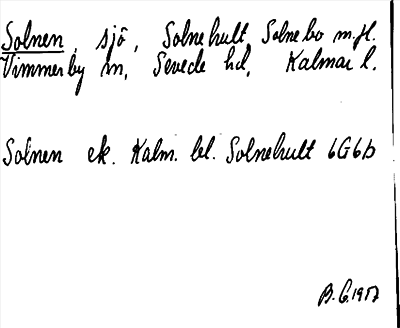 Solnen, sjö, Solnehult, Solnebo m.fl.
Vimmerby sn, Sevede hd, Kalmar l.
Solnen ek. Kalm. bl. Solnehult 6G6b
B.G. 1957